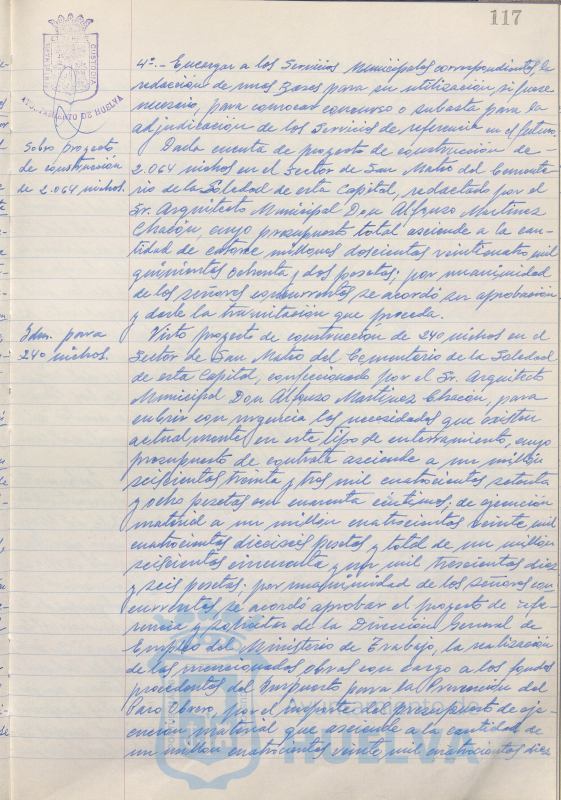 117
CUSTODIA
AYUNTAMIENTO DE HUELVA
4º.- Encargar a los Servicios Municipales correspondientes, la
redacción de unas Bases para su utilización si fuese
necesario, para convocar concurso o subasta para la
adjudicación de los Servicios de referencia en el futuro.
Sobre proyecto
de construcción
de 2.064 nichos.
Dada cuenta de proyecto de construcción de
2.064 nichos en el Sector de San Mateo del Cemente
rio de la Soledad de esta Capital, redactado por el
Sr. Arquitecto Municipal Don Alfonso Martínez
Chacón, cuyo presupuesto total asciende a la can-
tidad de catorce millones doscientas veinticuatro mil
quinientas ochenta y dos pesetas; por unanimidad
de los señores concurrentes se acordó su aprobación
y darle la tramitación que proceda.
Idm. para
240 nichos.
Visto proyecto de construcción de 240 nichos en el
Sector de San Mateo del Cementerio de la Soledad
de esta Capital, confeccionado por el Sr. Arquitecto
Municipal Don Alfonso Martínez Chacón, para
cubrir con urgencia las necesidades que existen
actualmente en este tipo de enterramiento, cuyo
presupuesto de contrata asciende a un millón
seiscientas treinta y tres mil cuatrocientas setenta
y ocho pesetas con cuarenta céntimos; de ejecución
material a un millón cuatrocientas veinte mil
cuatrocientas dieciseis pesetas y total de un millón
seiscientas cincuenta y un mil trescientas diez
y seis pesetas. por unanimidad de los señores con
currentes se acordó aprobar el proyecto de refe-
rencia y solicitar de la Dirección General de
Empleo del Ministerio de Trabajo, la realización
de las mencionadas obras con cargo a los fondos
procedentes del Impuesto para la Prevención del
Paro Obrero, por el importe del presupuesto de eje-
cución material que asciende a la cantidad de
un millón cuatrocientas veinte mil cuatrocientas diez
HUELVA